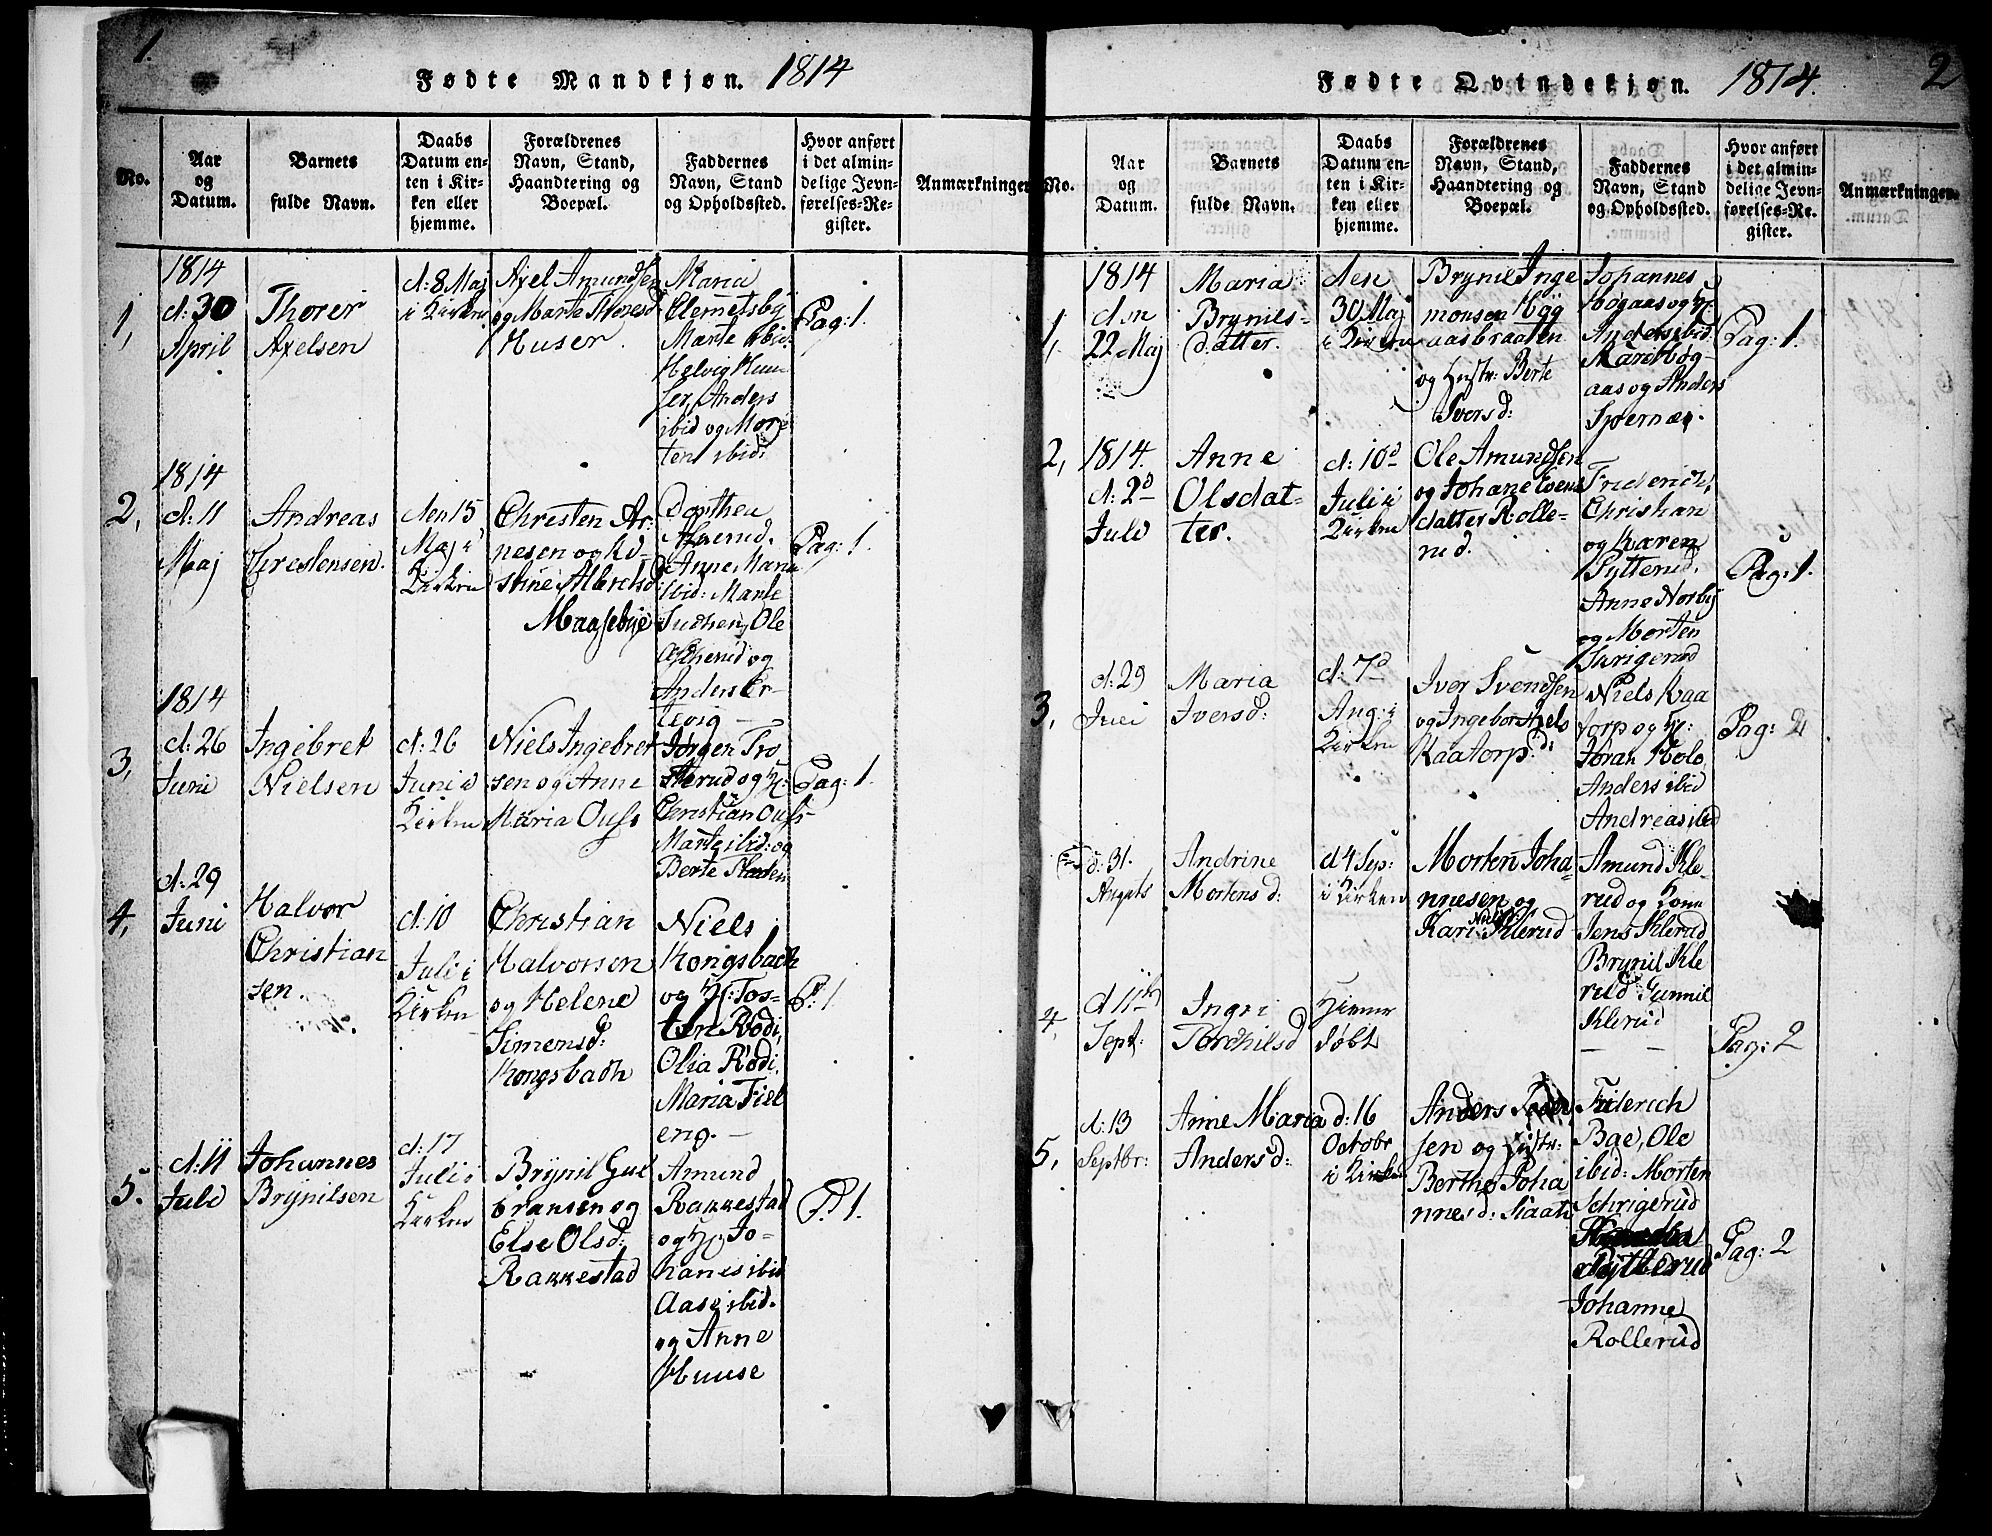 1.
Fødte Mandkjøn. 1814
No.
Aar
og
Datum.
Barnets
fulde Navn.
Daabs
Datum en-
ten i Kir-
ken eller
hjemme.
Forældrenes
Navn, Stand,
Haandtering og
Boepæl.
Faddernes
Navn, Stand
og Opholdssted.
Hvor anført
i det almin-
delige Jevn-
førelses-Re-
gister.
Anmærkninger
1,
1814
d: 30
April
Thorer
Axelsen
d: 8 Maj
i Kirken
Axel Amundsen
og Marte
Huser
Maria
Clemetsby
Marte ibid:
Helvig Huu-
ser, Anders
ibid og Mor-
ten ibid:
Pag: 1.
2,
1814
d: 11
Maj
Andreas
Christensen.
den 15
Maj i
Kirken
Christen Ar-
nesen og Ki-
stine
Dorthea
Anne Maria
ibid: Marte
Ole
og
Anders
Pag: 1.
3,
1814
d: 26
Juni
Ingebret
Nielsen
d: 26
Juni i
Kirken
Niels Ingebret-
sen og Anne
Maria
Jørgen Tro-
sterud og H:
Christian
Marte ibid: og
Berte
Pag: 1.
4,
d: 29
Juni
Halvor
Christian
sen.
d: 10
Juli i
Kirken
Christian
Halvorsen
og Helene
Simensd:
Kongsbach
Niels
Kongsbach
og H: Tos-
ten Rødi,
Olia Rødi,
Maria Fiel
eng. —
P: 1
5.
d: 11
Juli
Johannes
Brynilsen
d: 17
Juli i
Kirken
Brynil Gul
bransen og
Else Olsd:
Rakkestad
Amund
Rakkestad
og H, Jo-
hanes ibid
Aase ibid.
og Anne
Huuse
P: 1.
2
Fødte Qvindekjøn. 1814.
No.
Aar
og
Datum.
Barnets
fulde Navn.
Daabs
Datum en-
ten i Kir-
ken eller
hjemme.
Forældrenes
Navn, Stand,
Haandtering og
Boepæl.
Faddernes
Navn, Stand
og Opholdssted.
Hvor anført
i det almin-
delige Jevn-
førelses-Re-
gister.
Anmærkninger.
1,
1814
den
22 Maj
Maria
Brynils-
datter.
den
30 Maj
i Kirken
Brynil Inge
monsen Høg
aasbraaten
og Hustr: Berte
Iversd:
Johannes
Høgaas og H:
Anders ibid:
Mari Høg-
aas og Anders
Pag: 1.
2,
1814.
d: 2d
Juli
Anne
Olsdat-
ter.
d: 10d
Juli i
Kirken
Ole Amundsen
og Johane
datter Rolle-
rud.
Friderich,
Christian
og Karen
Pytterud,
Anne Norby
og Morten
Skrigerud
Pag: 1.
3,
d: 29
Maria
Iversd:
d: 7d
Aug: i
Kirken
Iver Svendsen
og Ingebor
Kaatorp
Niels Kaa
torp og H:
Joran Holo
Anders ibid
Andreas ibid
Pag: 2
d: 31.
Augsts
Andrine
Mortens d:
d 4 Sep:
i Kirken
Morten Joha-
nnesen og
Kari Klerud
Amund Kle-
rud og Kone
Jens Klerud
Brynil Kle
rud Gunnil
Klerud
4,
d 11th
Sept:
Ingri
Torchilsd
Hieme
døbt
— —
Pag: 2
5,
d: 13
Septbr:
Anne Maria
Anders d:
d: 16
Octobr
i Kirken
Anders
sen og Hustr:
Berthe Joha
nnesd:
Friderich
Bae, Ole
ibid: Morten
Schrigerud
Pytterud
Johanne
Rollerud
Pag: 2